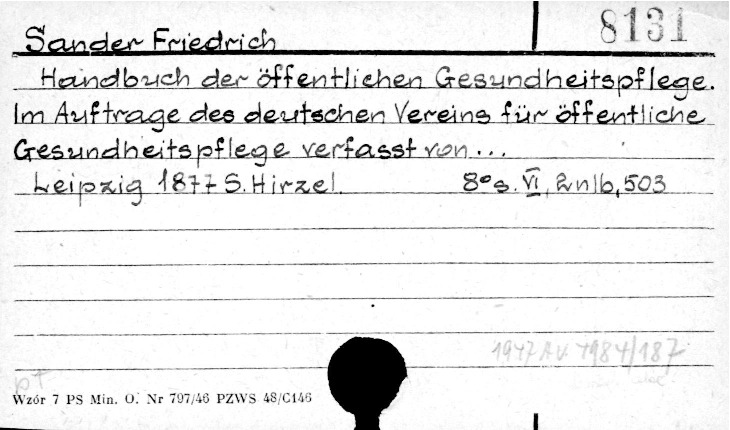 8131
Sander Friedrich
Handbuch der öffentlichen Gesundheitspflege.
Im Auftrage des deutschen Vereins für öffentliche
Gesundheitspflege verfasst von...
Leipzig 1877 S. Hirzel. 8° s. VI, 2nlb, 503
1947 A v. 1984/187
pt
Wzór 7 PS Min. O. Nr 797/46 PZWS 48/C146